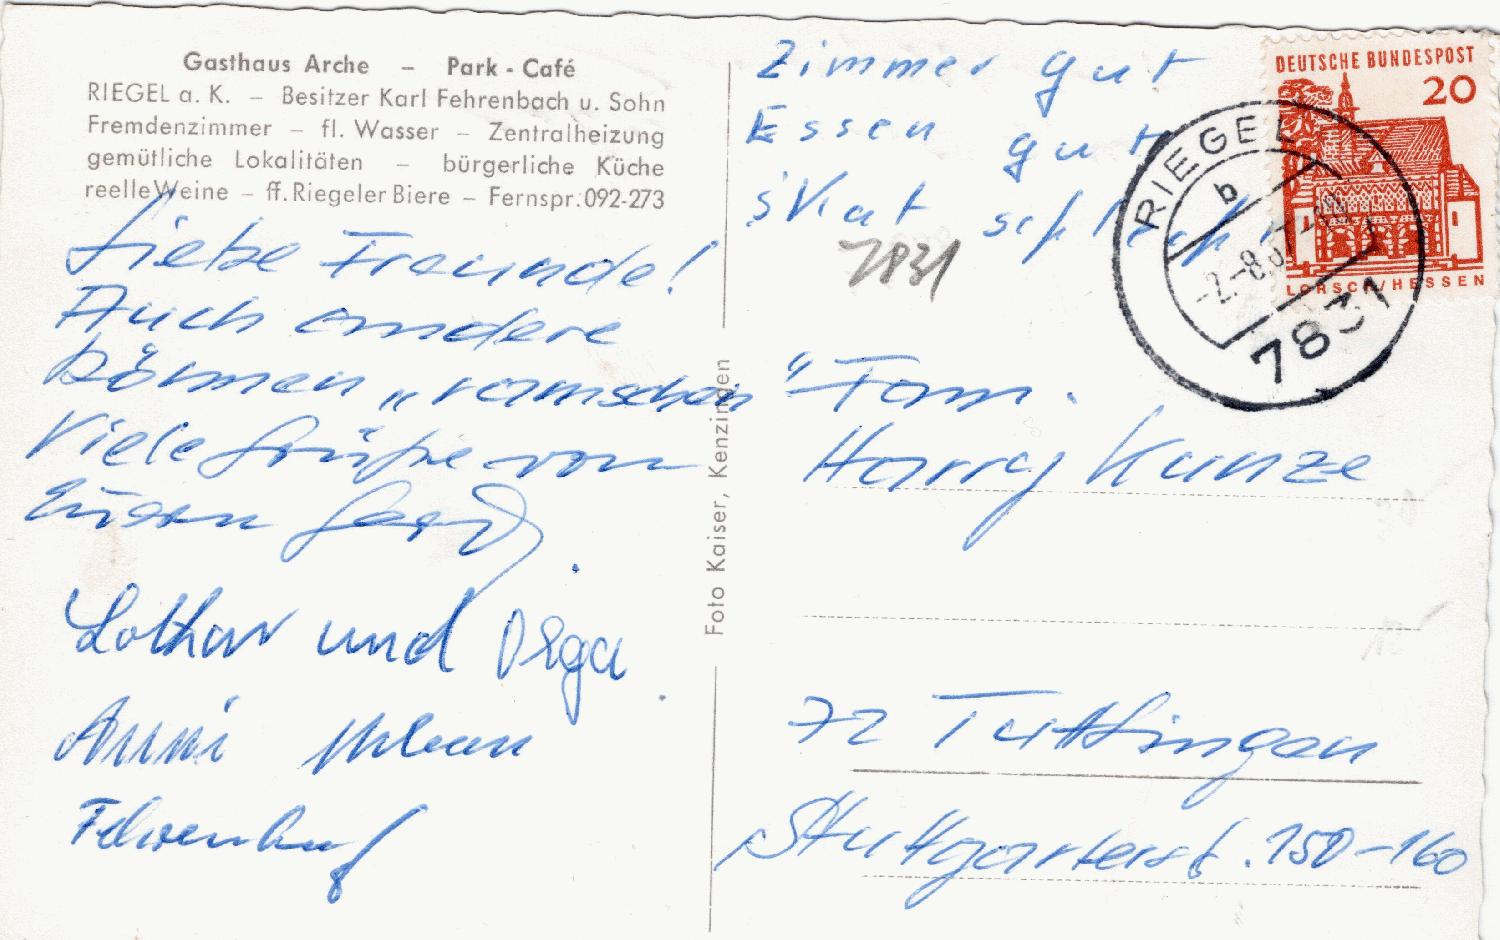 Gasthaus Arche – Park-Café
RIEGEL a. K. – Besitzer Karl Fehrenbach u. Sohn
Fremdenzimmer – fl. Wasser – Zentralheizung
gemütliche Lokalitäten – bürgerliche Küche
reelle Weine – ff. Riegeler Biere – Fernspr. 092-273
Liebe Freunde!
Auch andere
können „ramschen"
Viele Grüße von
Euren
Lothar und Olga
Anni
Zimmer gut
Essen gut
Skat schlecht
7831
DEUTSCHE BUNDESPOST
20
LORSCH/HESSEN
RIEGEL
b
-2.-8.
7831
Foto Kaiser, Kenzingen
Fam.
Harry Kunze
72 Tuttlingen
Stuttgarterst. 150-160